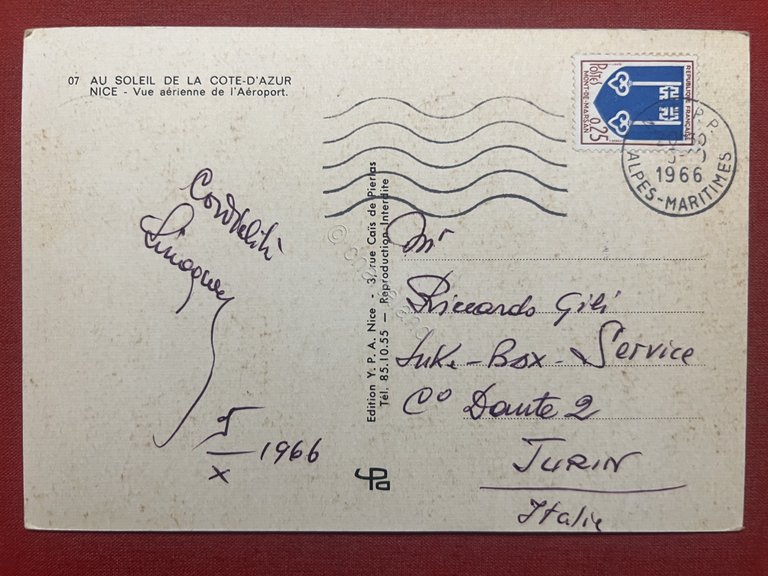 07 AU SOLEIL DE LA COTE-D'AZUR
NICE - Vue aérienne de l'Aéroport.
Cordialità
5
X - 1966
Edition Y. P. A. Nice - 3, rue Caïs de Pierlas
Tél. 85.10.55 - Reproduction Interdite
RÉPUBLIQUE FRANÇAISE
POSTES
MONT-DE-MARSAN
0,25
1966
ALPES-MARITIMES
Mr
Riccardo Gili
Juke-Box-Service
Co Dante 2
TURIN
Italie